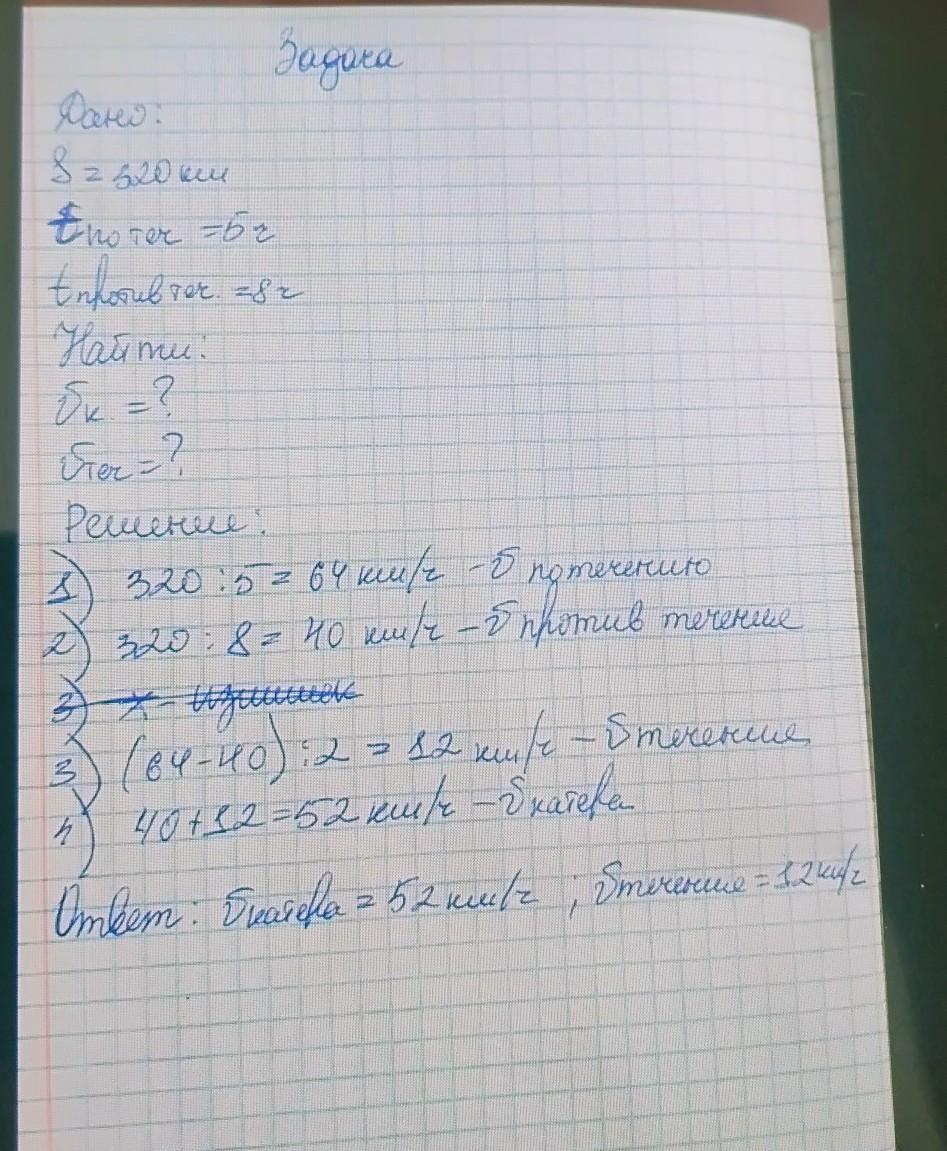 Задача
Дано:
S = 320 км
t по теч = 5 г
t против теч. = 8 г
Найти:
υк = ?
υтеч = ?
Решение:
1) 320 : 5 = 64 км/г - υ по течению
2) 320 : 8 = 40 км/г - υ против течение
3) x -
3) (64-40) : 2 = 12 км/г - υ течение
4) 40+12 = 52 км/г - υ катера
Ответ: υ катера = 52 км/г ; υ течение = 12 км/г